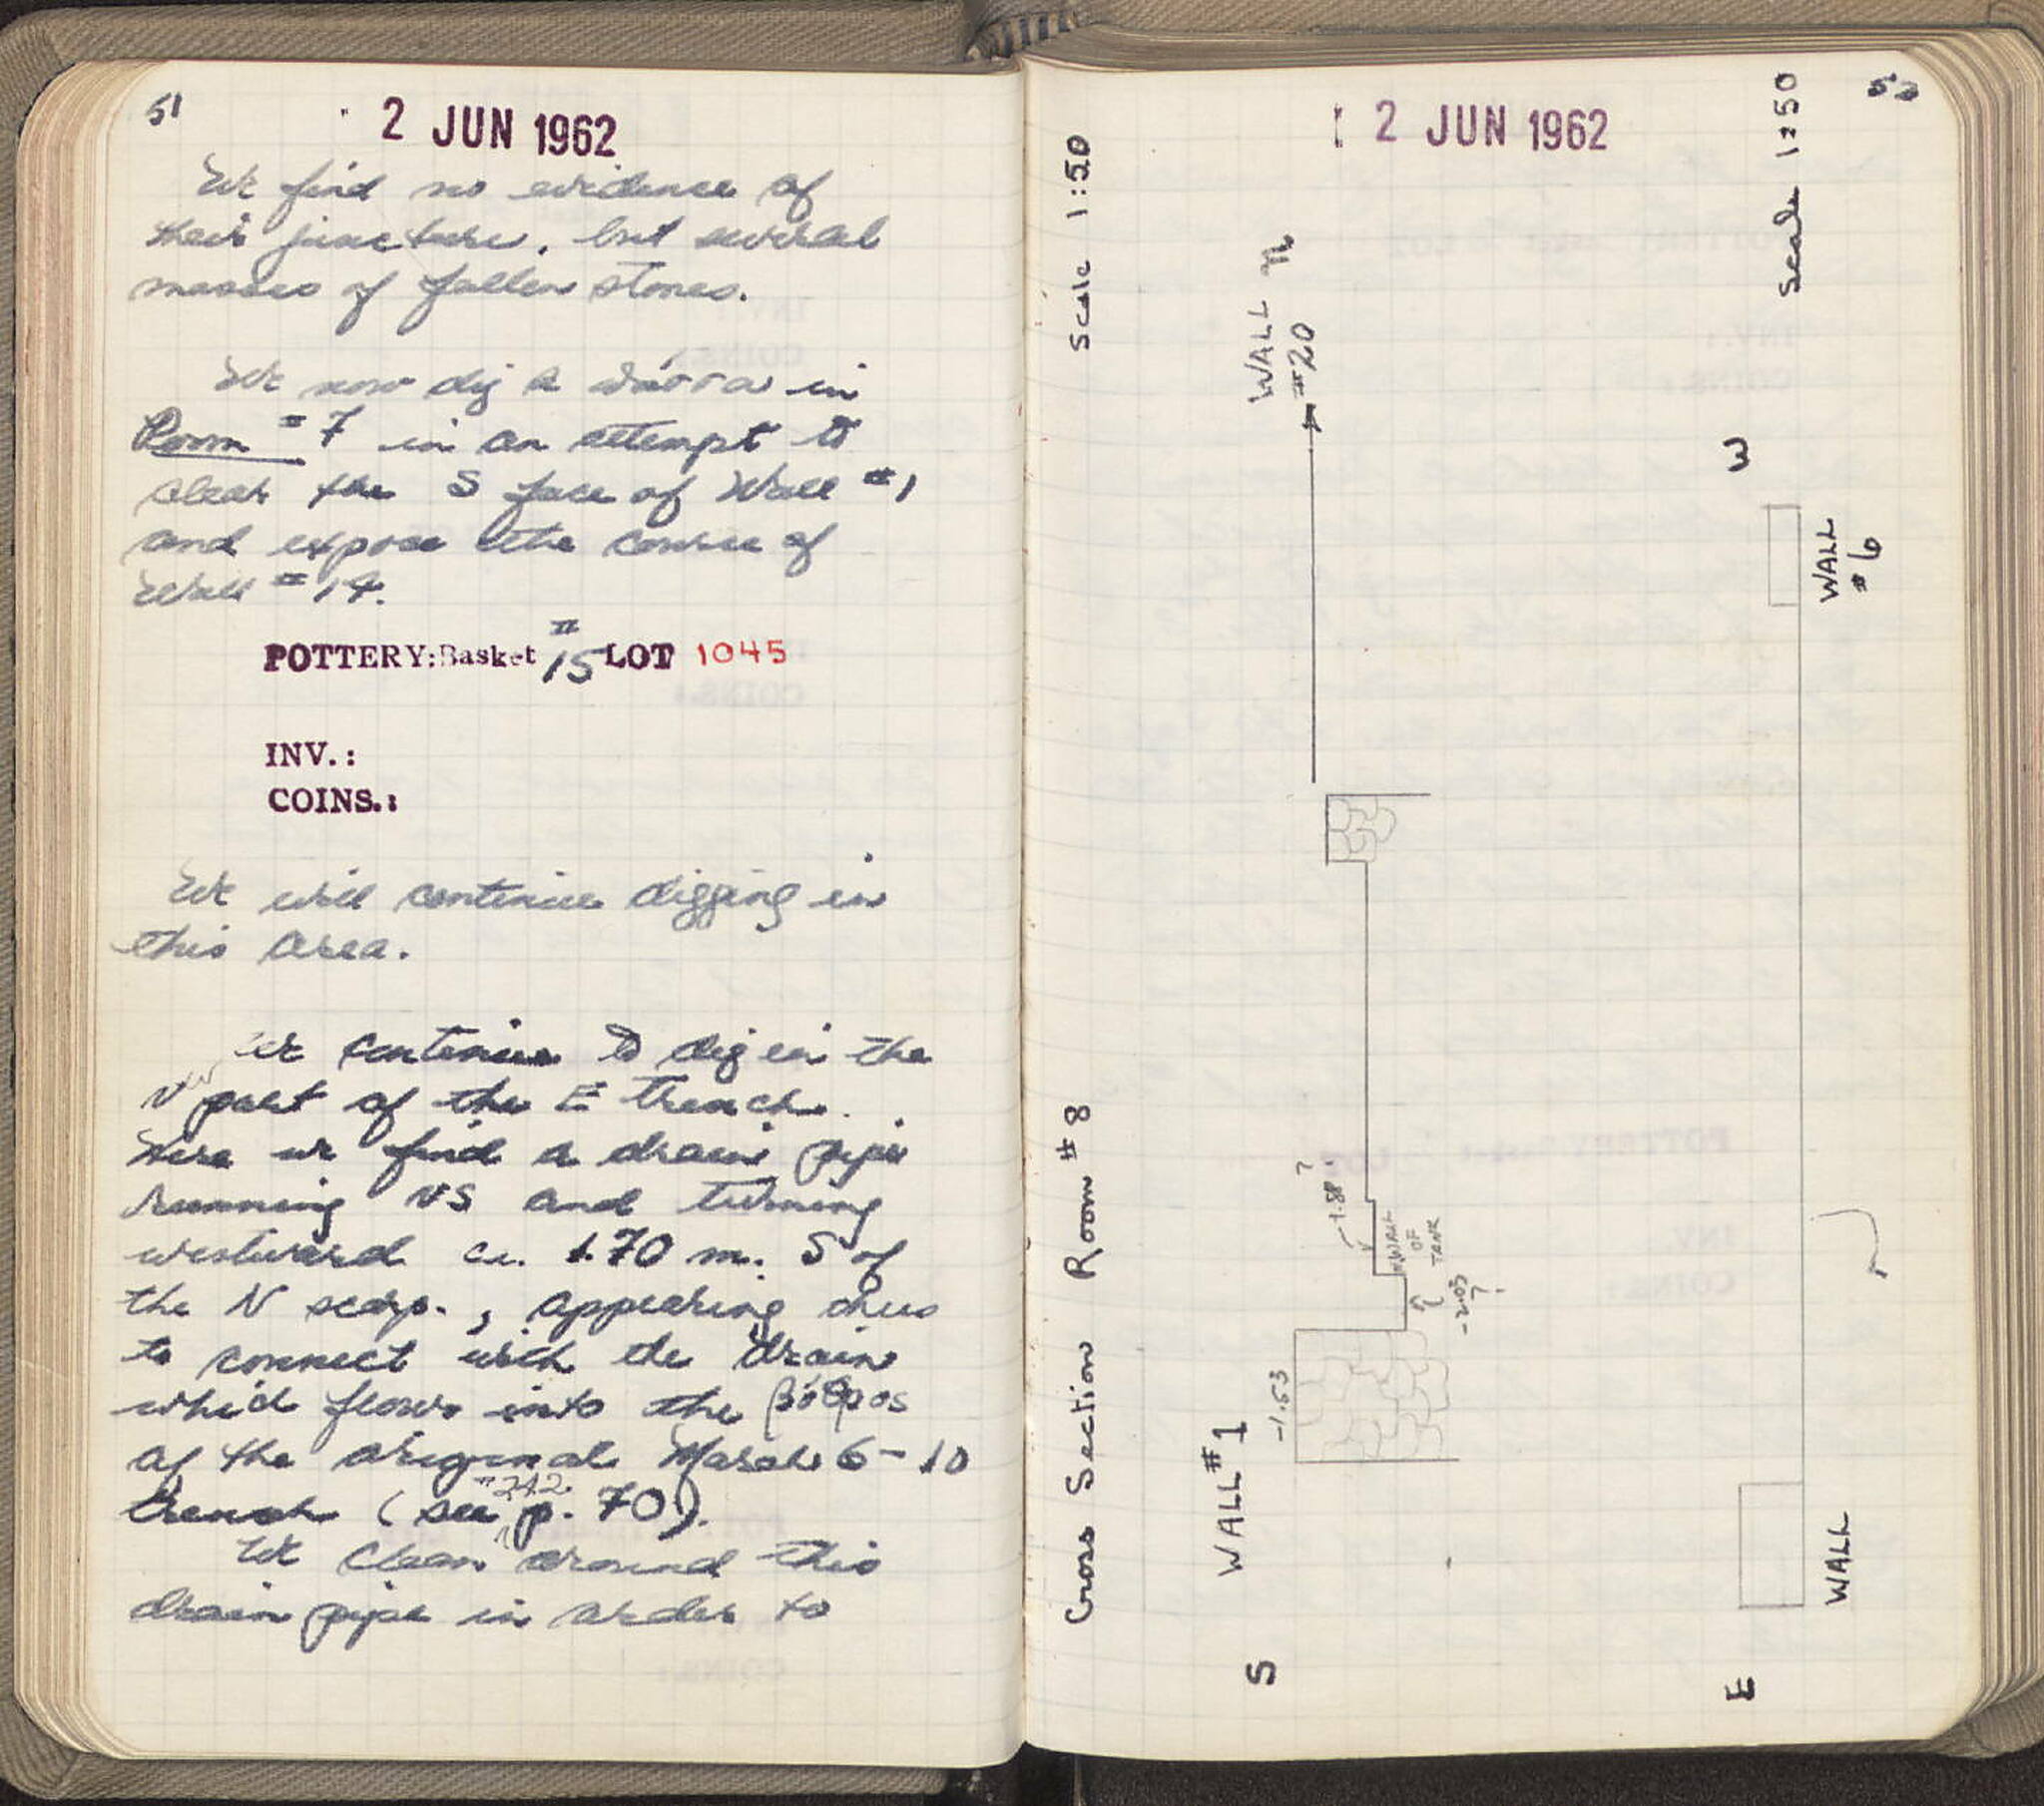 51
2 JUN 1962
We find no evidence of
their juncture, but several
masses of fallen stones.
We now dig a in
Room #7 in an attempt to
clear the S face of Wall #1
and expose the course of
Wall #14.
POTTERY: Basket #15 LOT 1045
INV.:
COINS.:
We will continue digging in
this area.
We continue to dig in the
N part of the E trench.
Here we find a drain pipe
running NS and turning
westward ca. 1.70 m. S of
the N scarp., appearing thus
to connect with the drain
which flows into the βόθρος
of the original March 6-10
trench (see #242 p. 70).
We clean around this
drain pipe in order to
52
2 JUN 1962
Cross Section Room #8 Scale 1:50
S
WALL #1
-1.53
-2.05 ?
N WALL
OF
TANK
-1.88 ?
WALL
#20
N
E
W
Scale 1:50
WALL
WALL
#6